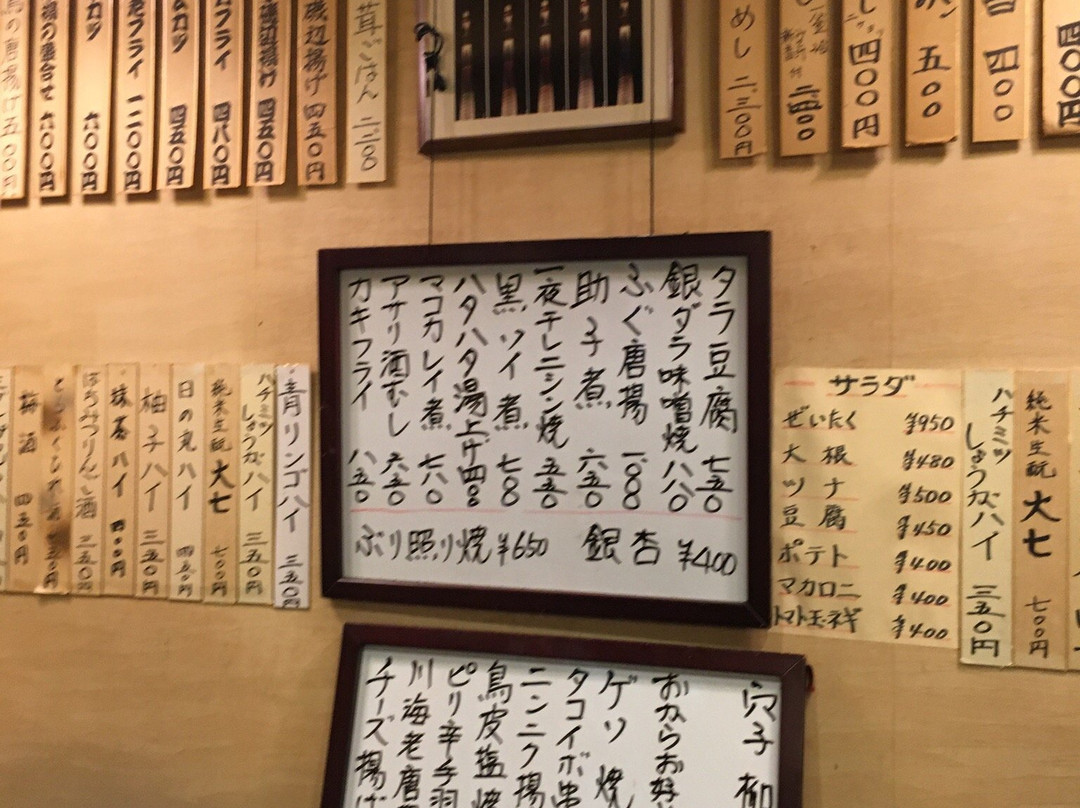 茸ごはん 二、一〇〇
磯辺揚げ 四五〇円
四五〇円
フライ 四八〇円
カツ 四五〇円
フライ 一二〇〇円
カツ 六〇〇円
の盛合せ 六〇〇円
の唐揚げ 五〇〇円
四〇〇
五〇〇
四〇〇円
めし 二、三〇〇円
タラ豆腐 七五〇
銀ダラ味噌焼 八八〇
ふぐ唐揚 八〇〇
助子煮 六五〇
一夜干しニシン焼 五五〇
黒ソイ煮 七〇〇
ハタハタ湯上げ 四〇〇
マコカレイ煮 七六〇
アサリ酒むし 六五〇
カキフライ 八五〇
ぶり照り焼 ¥650 銀杏 ¥400
青リンゴハイ 三五〇円
ハチミツしょうがハイ 三五〇円
純米生酛 大七 七〇〇円
日の丸ハイ 四五〇円
柚子ハイ 三五〇円
抹茶ハイ 四〇〇円
はちみつりんご酒 三五〇円
梅酒 四五〇円
サラダ
ぜいたく ¥950
大根 ¥480
ツナ ¥500
豆腐 ¥450
ポテト ¥400
マカロニ ¥400
トマト玉ネギ ¥400
ハチミツしょうがハイ 三五〇円
純米生酛 大七 七〇〇円
穴子柳
おからお好
ゲソ焼
タコイボ串
ニンニク揚
鳥皮塩焼
ピリ辛手羽
川海老唐
チーズ揚げ